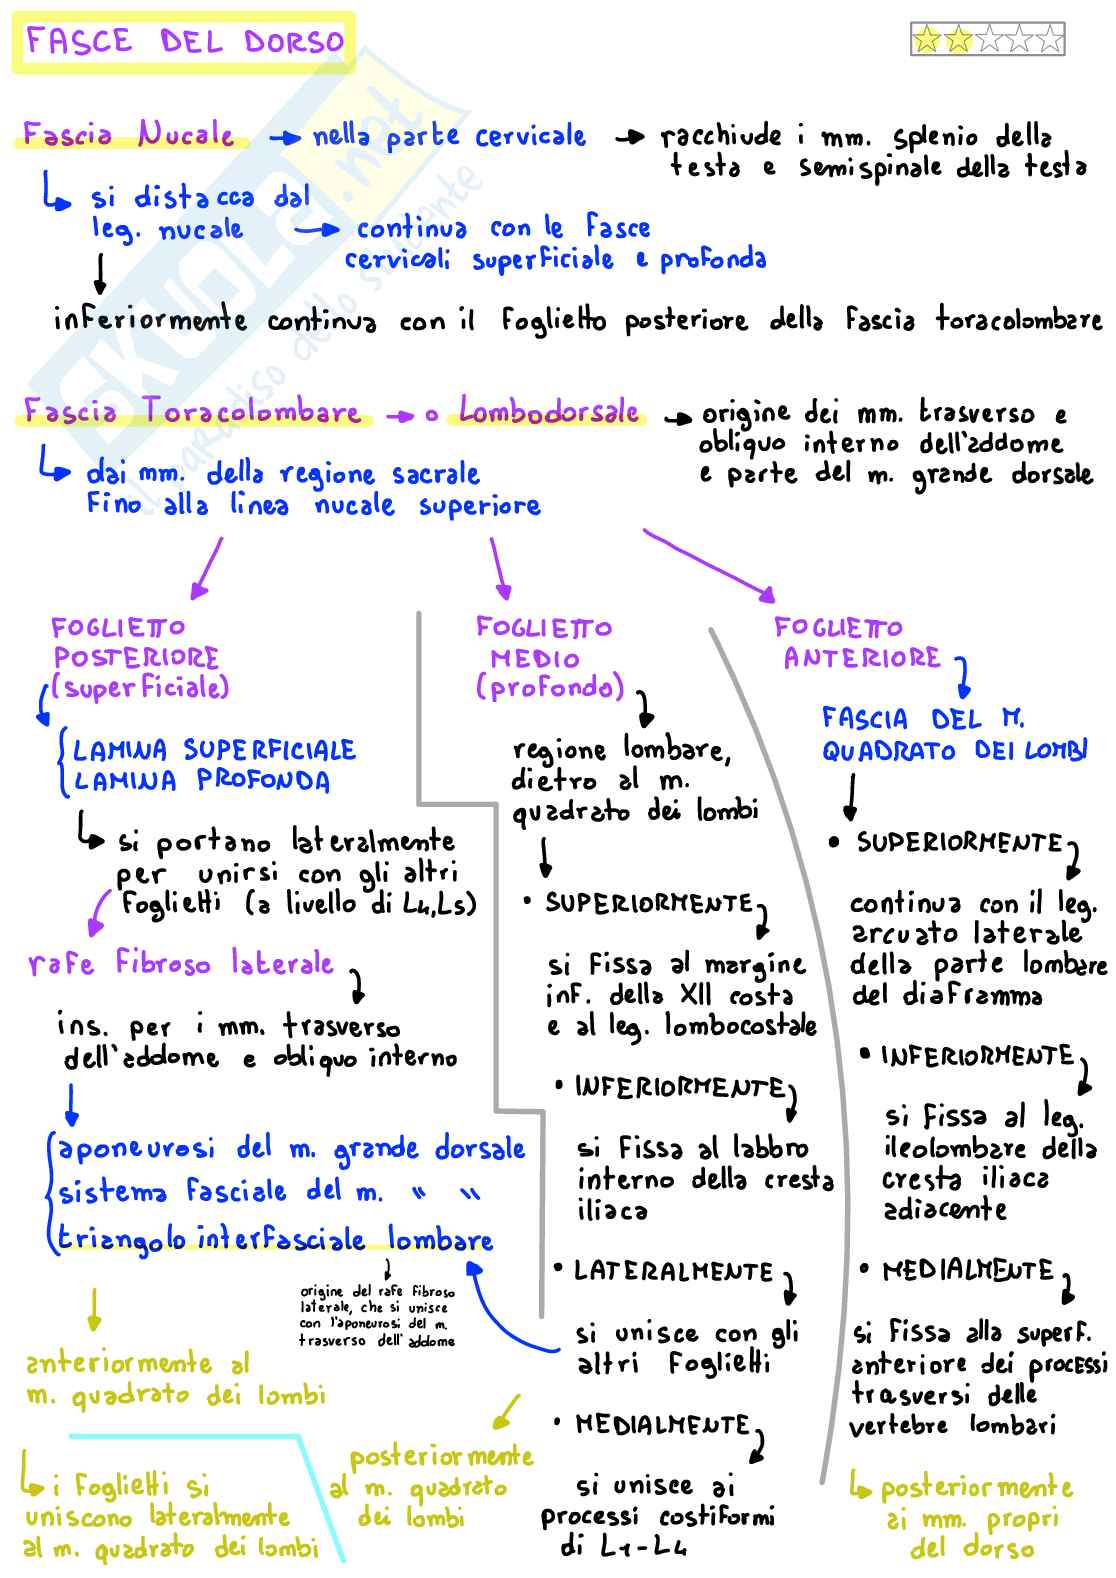 FASCE DEL DORSO
Fascia Nucale → nella parte cervicale → racchiude i mm. splenio della
testa e semispinale della testa
si distacca dal
leg. nucale → continua con le fasce
cervicali superficiale e profonda
inferiormente continua con il foglietto posteriore della fascia toracolombare
Fascia Toracolombare → o Lombodorsale → origine dei mm. trasverso e
obliquo interno dell'addome
e parte del m. grande dorsale
dai mm. della regione sacrale
fino alla linea nucale superiore
FOGLIETTO
POSTERIORE
(superficiale)
LAMINA SUPERFICIALE
LAMINA PROFONDA
si portano lateralmente
per unirsi con gli altri
foglietti (a livello di L4,L5)
rafe fibroso laterale
ins. per i mm. trasverso
dell'addome e obliquo interno
aponeurosi del m. grande dorsale
sistema fasciale del m. " "
triangolo interfasciale lombare
origine del rafe fibroso
laterale, che si unisce
con l'aponeurosi del m.
trasverso dell'addome
anteriormente al
m. quadrato dei lombi
i foglietti si
uniscono lateralmente
al m. quadrato dei lombi
FOGLIETTO
MEDIO
(profondo)
regione lombare,
dietro al m.
quadrato dei lombi
• SUPERIORMENTE
si fissa al margine
inf. della XII costa
e al leg. lombocostale
• INFERIORMENTE
si fissa al labbro
interno della cresta
iliaca
• LATERALMENTE
si unisce con gli
altri foglietti
• MEDIALMENTE
si unisce ai
processi costiformi
di L1-L4
posteriormente
al m. quadrato
dei lombi
FOGLIETTO
ANTERIORE
FASCIA DEL M.
QUADRATO DEI LOMBI
• SUPERIORMENTE
continua con il leg.
arcuato laterale
della parte lombare
del diaframma
• INFERIORMENTE
si fissa al leg.
ileolombare della
cresta iliaca
adiacente
• MEDIALMENTE
si fissa alla superf.
anteriore dei processi
trasversi delle
vertebre lombari
posteriormente
ai mm. propri
del dorso
SKUOLA.net
il paradiso dello studente